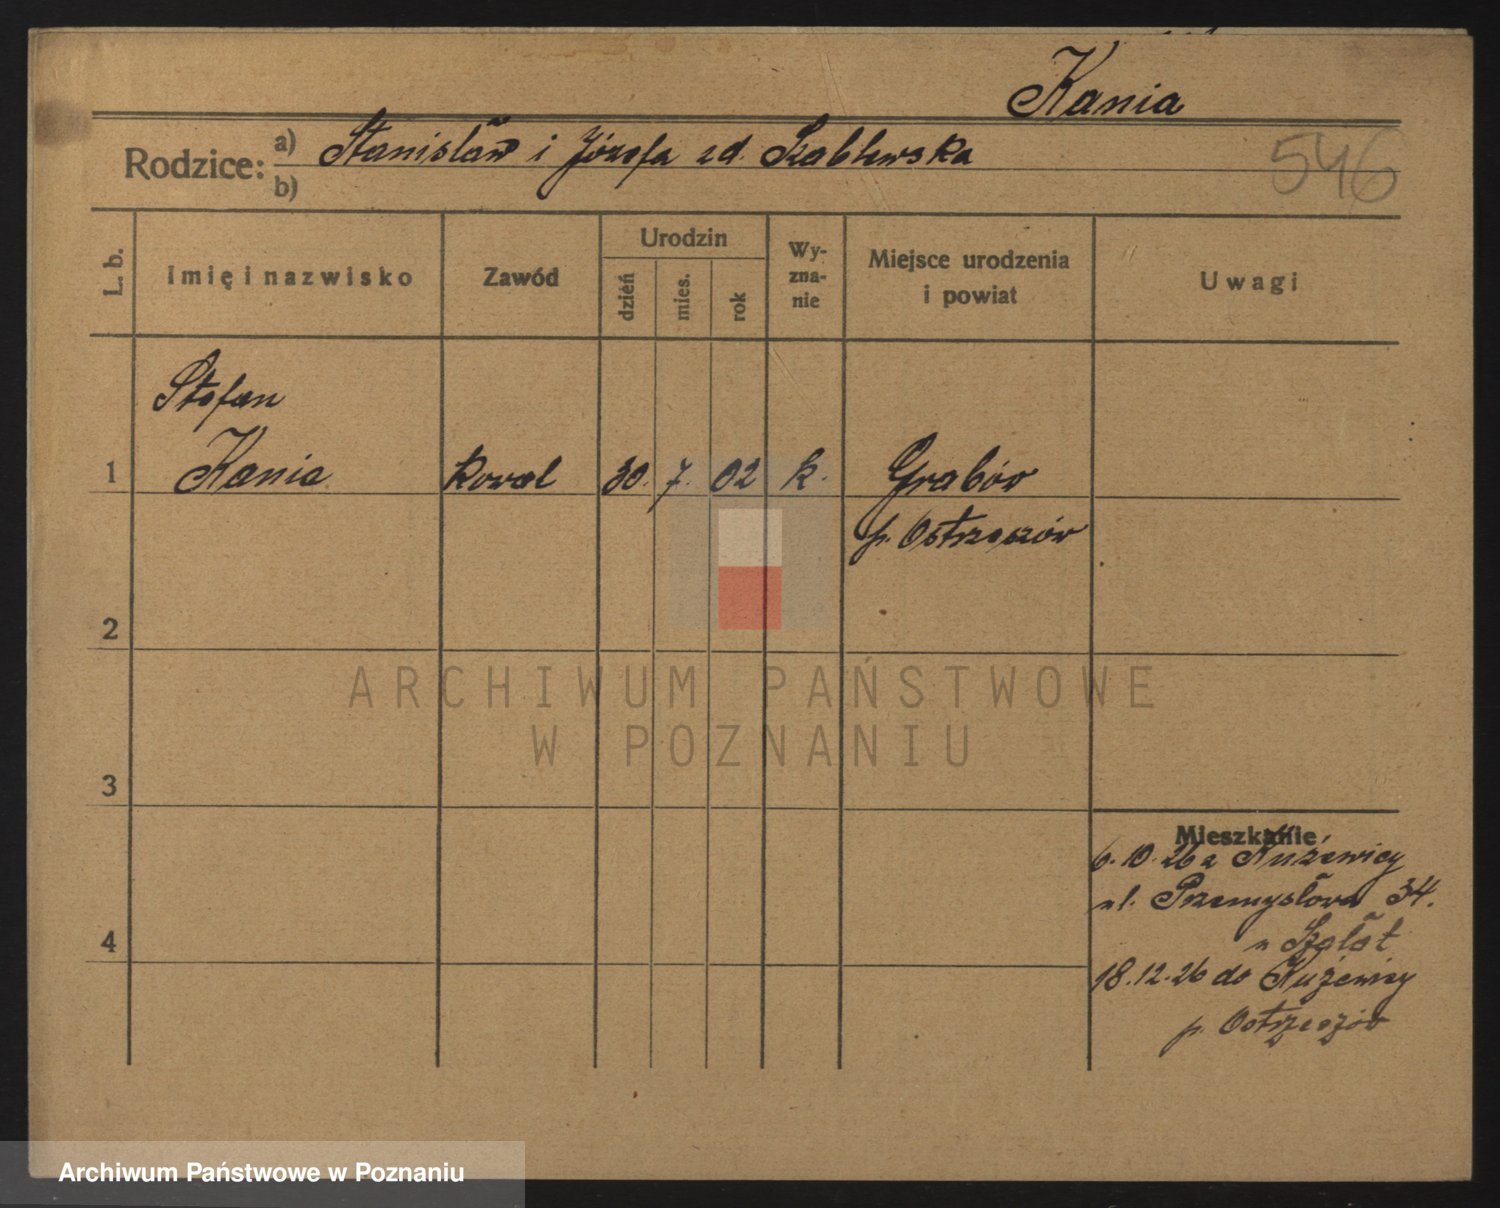 Kania
Rodzice: a) Stanisław i Józefa zd. Szablewska
b)
546
L. b.
Imię i nazwisko
Zawód
Urodzin
dzień
mies.
rok
Wy-
zna-
nie
Miejsce urodzenia
i powiat
Uwagi
Stefan
1 Kania kowal 30. 7. 02 k. Grabów
p. Ostrzeszów
2
ARCHIWUM PAŃSTWOWE
W POZNANIU
3
Mieszkanie
6.10.26 z Kuźnicy
ul. Przemysłowa 34.
4
18.12.26 do
p. Ostrzeszów
Archiwum Państwowe w Poznaniu